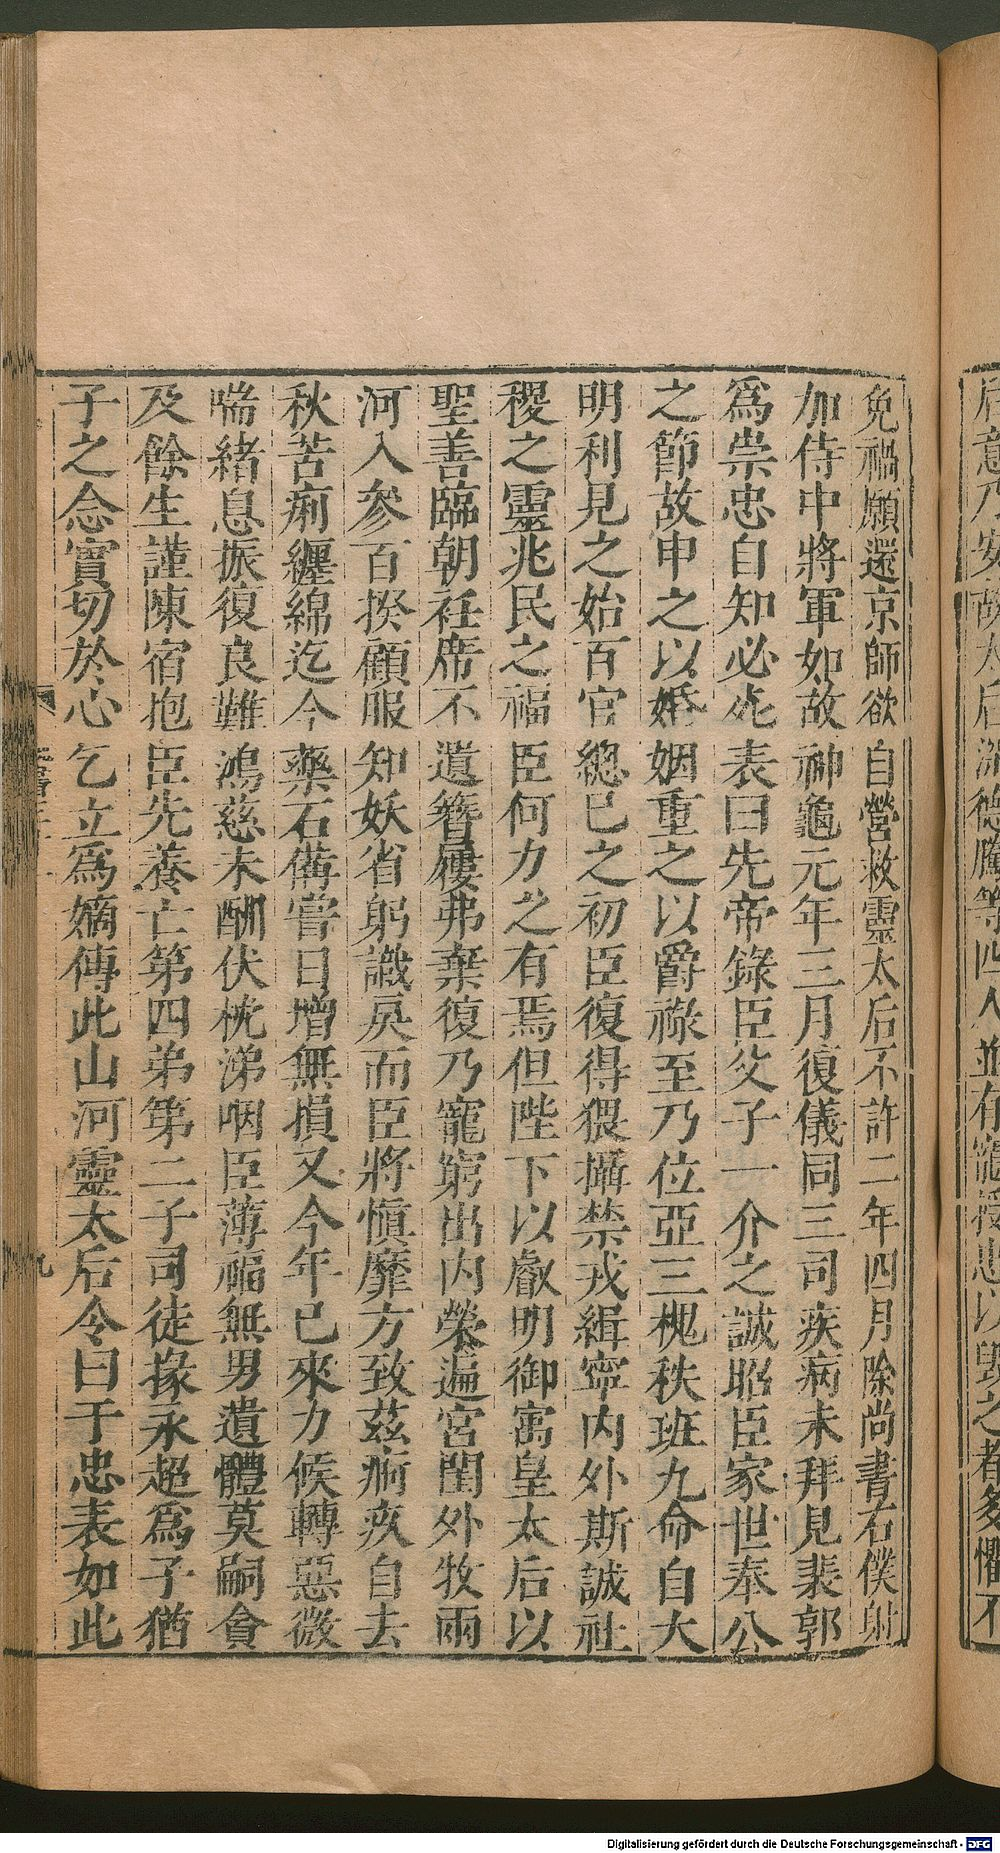 后意乃安故太后
免禍願還京師欲自營救靈太后不許二年四月除尚書右僕射
加侍中將軍如故神龜元年三月復儀同三司疾病未拜見裴郭
爲祟忠自知必死表曰先帝錄臣父子一介之誠昭臣家世奉公
之節故申之以婚姻重之以爵祿至乃位亞三槐秩班九命自大
明利見之始百官總已之初臣復得猥攝禁戎緝寧内外斯誠社
稷之靈兆民之福臣何力之有焉但陛下以叡明御寓皇太后以
聖善臨朝衽席不遺簪屨弗棄復乃寵窮出内榮遍宮閨外牧兩
河入參百揆顧服知妖省躬識戾而臣將愼靡方致茲痾疾自去
秋苦痢纏綿迄今藥石備嘗日增無損又今年已來力候轉惡微
喘緒息振復良難鴻慈未酬伏枕涕咽臣薄福無男遺體莫嗣貪
及餘生謹陳宿抱臣先養亡第四弟第二子司徒掾永超爲子猶
子之念實切於心乞立爲嫡傳此山河靈太后令曰于忠表如此
九
Digitalisierung gefördert durch die Deutsche Forschungsgemeinschaft - DFG